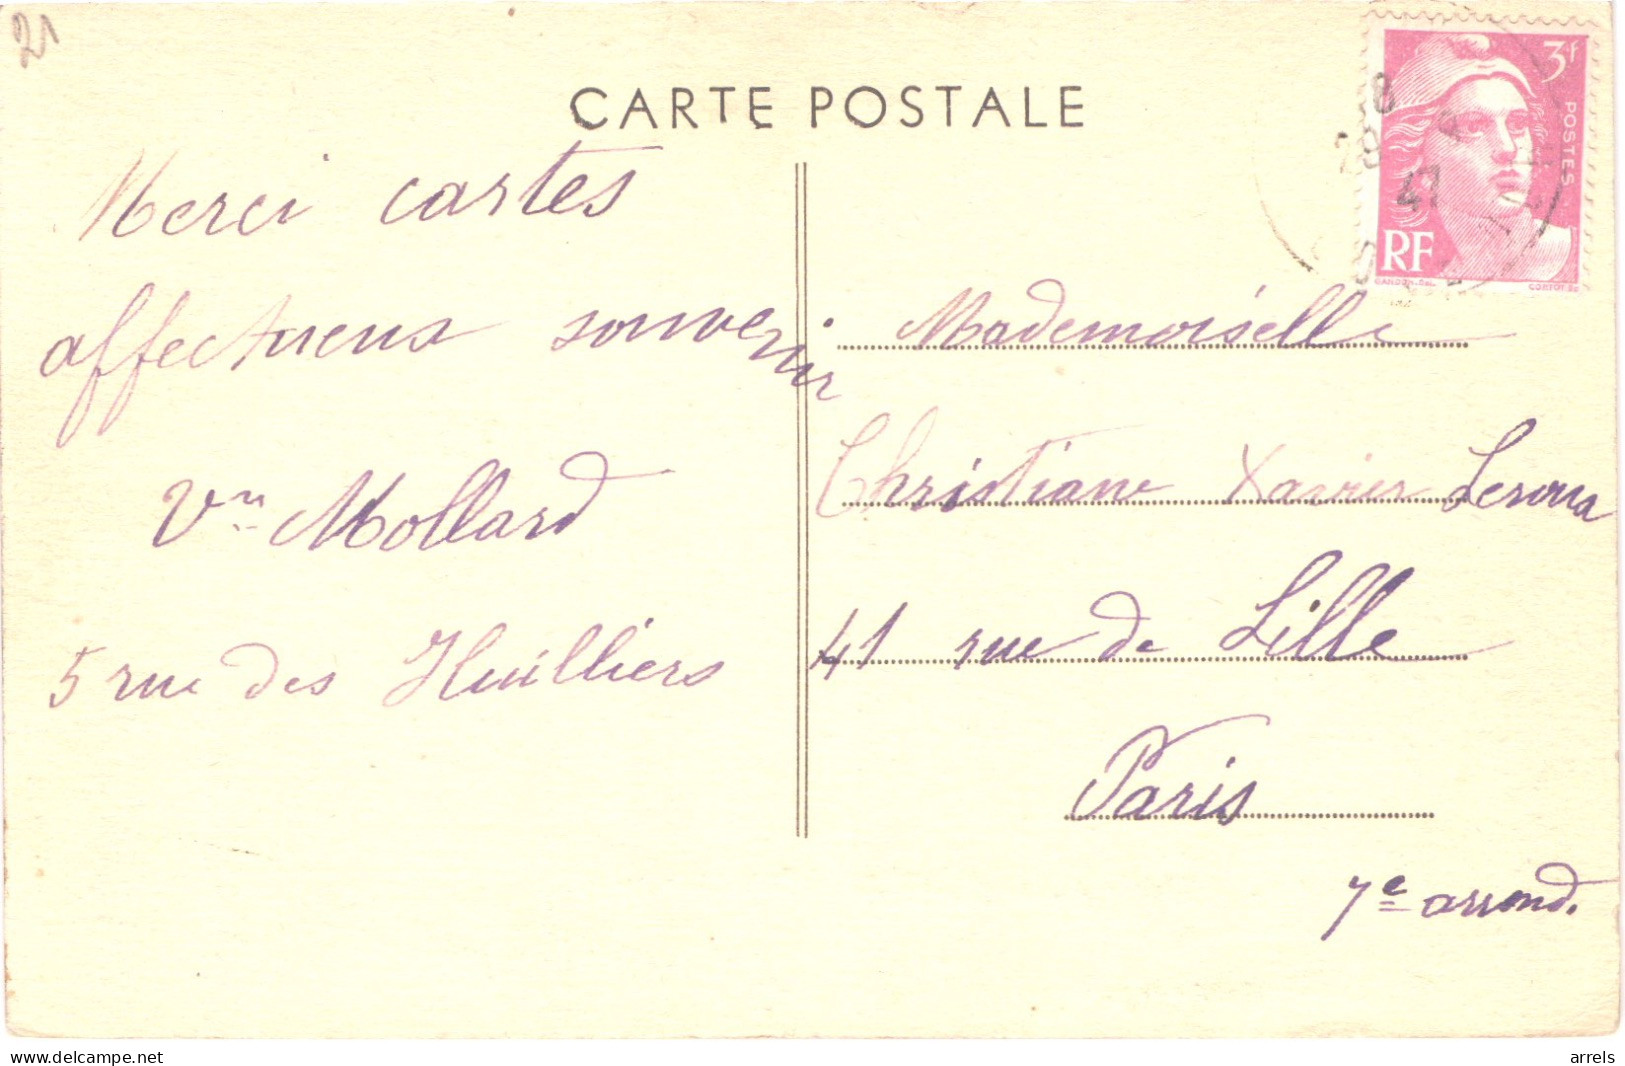 21
CARTE POSTALE
3f
POSTES
RF
GANDON-DEL.
CORTOT SC
28
47
Merci cartes
affectueux souvenir
Vve Mollard
5 rue des Huilliers
Mademoiselle
Christiane Xavier Leroux
41 rue de Lille
Paris
7e arrond.
www.delcampe.net
arrels